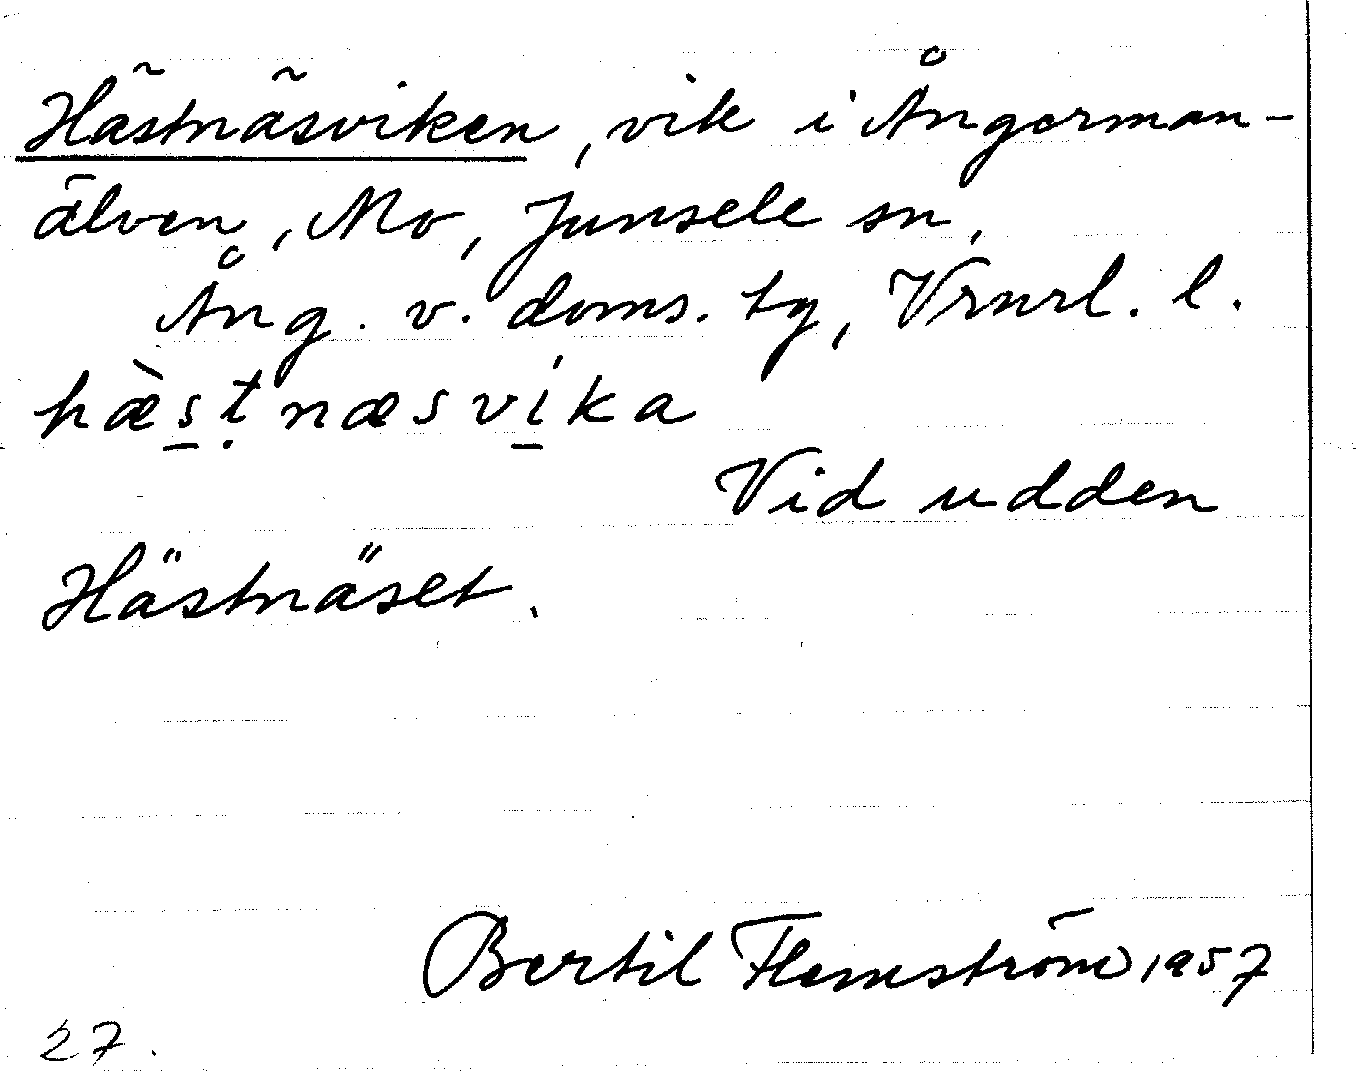 Hästnäsviken, vik i Ångerman-
älven, Mo, Junsele sn,
Ång. v. doms. tg, Vrnrl. l.
hæ̀s̠ṭnæsví̠ka
Vid udden
Hästnäset.
Bertil Flemström 1957
27.